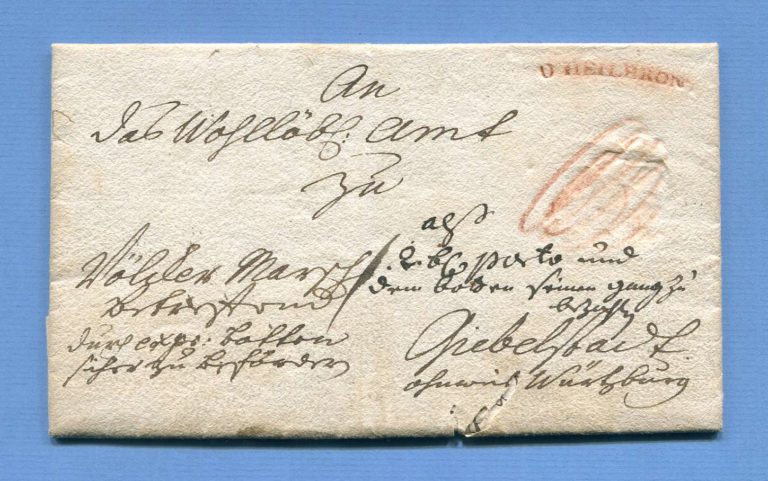 D HEILBRON
An
das Wohllöbl: Amt
zu
Völcker Marsch
betreffend
durch expr: botten
sicher zu befördern
porto und
dem botten seinen gang zu
Giebelstadt
ohnweit Würtzburg